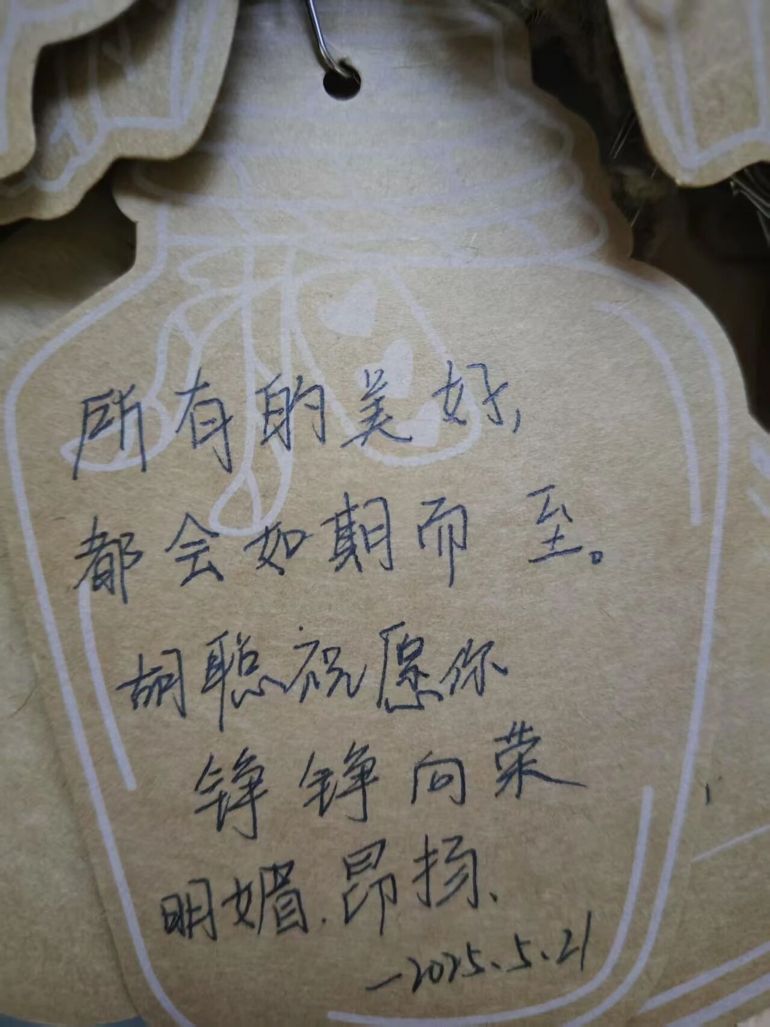 所有的美好,
都会如期而至。
胡聪祝愿你
铮铮向荣
明媚.昂扬、
—2025.5.21